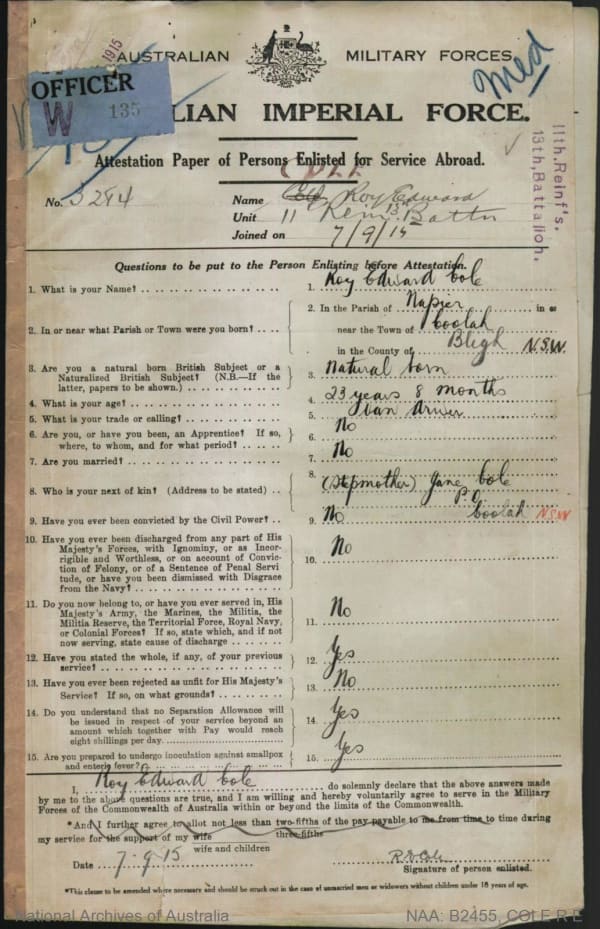 1915
AUSTRALIAN MILITARY FORCES.
OFFICER
W 135
Med
LIAN IMPERIAL FORCE.
Attestation Paper of Persons Enlisted for Service Abroad.
11th Reinf's.
13th, Battalion.
COLE
No. 3294 Name Roy Edward
Unit 11 Rein 13 Battn
Joined on 7/9/15
Questions to be put to the Person Enlisting before Attestation.
1. What is your Name? 1. Roy Edward Cole
2. In or near what Parish or Town were you born? 2. In the Parish of Napier in or
near the Town of Coolah
in the County of Bligh N.S.W.
3. Are you a natural born British Subject or a
Naturalized British Subject? (N.B.—If the
latter, papers to be shown.) 3. Natural born
4. What is your age? 4. 23 years 8 months
5. What is your trade or calling? 5. Van driver
6. Are you, or have you been, an Apprentice? If so,
where, to whom, and for what period? 6. No
7. Are you married? 7. No
8. Who is your next of kin? (Address to be stated) 8. (Stepmother) Jane Cole
P.O.
Coolah NSW
9. Have you ever been convicted by the Civil Power? 9. No
10. Have you ever been discharged from any part of His
Majesty's Forces, with Ignominy, or as Incor-
rigible and Worthless, or on account of Convic-
tion of Felony, or of a Sentence of Penal Servi
tude, or have you been dismissed with Disgrace
from the Navy? 10. No
11. Do you now belong to, or have you ever served in, His
Majesty's Army, the Marines, the Militia, the
Militia Reserve, the Territorial Force, Royal Navy,
or Colonial Forces? If so, state which, and if not
now serving, state cause of discharge 11. No
12. Have you stated the whole, if any, of your previous
service? 12. Yes
13. Have you ever been rejected as unfit for His Majesty's
Service? If so, on what grounds? 13. No
14. Do you understand that no Separation Allowance will
be issued in respect of your service beyond an
amount which together with Pay would reach
eight shillings per day. 14. Yes
15. Are you prepared to undergo inoculation against smallpox
and enteric fever? 15. Yes
I, Roy Edward Cole do solemnly declare that the above answers made
by me to the above questions are true, and I am willing and hereby voluntarily agree to serve in the Military
Forces of the Commonwealth of Australia within or beyond the limits of the Commonwealth.
*And I further agree to allot not less than two-fifths of the pay payable to me from time to time during
three-fifths
my service for the support of my wife
wife and children
Date 7.9.15 R E Cole
Signature of person enlisted.
*This clause to be amended where necessary and should be struck out in the case of unmarried men or widowers without children under 18 years of age.
National Archives of Australia NAA: B2455, COLE R E